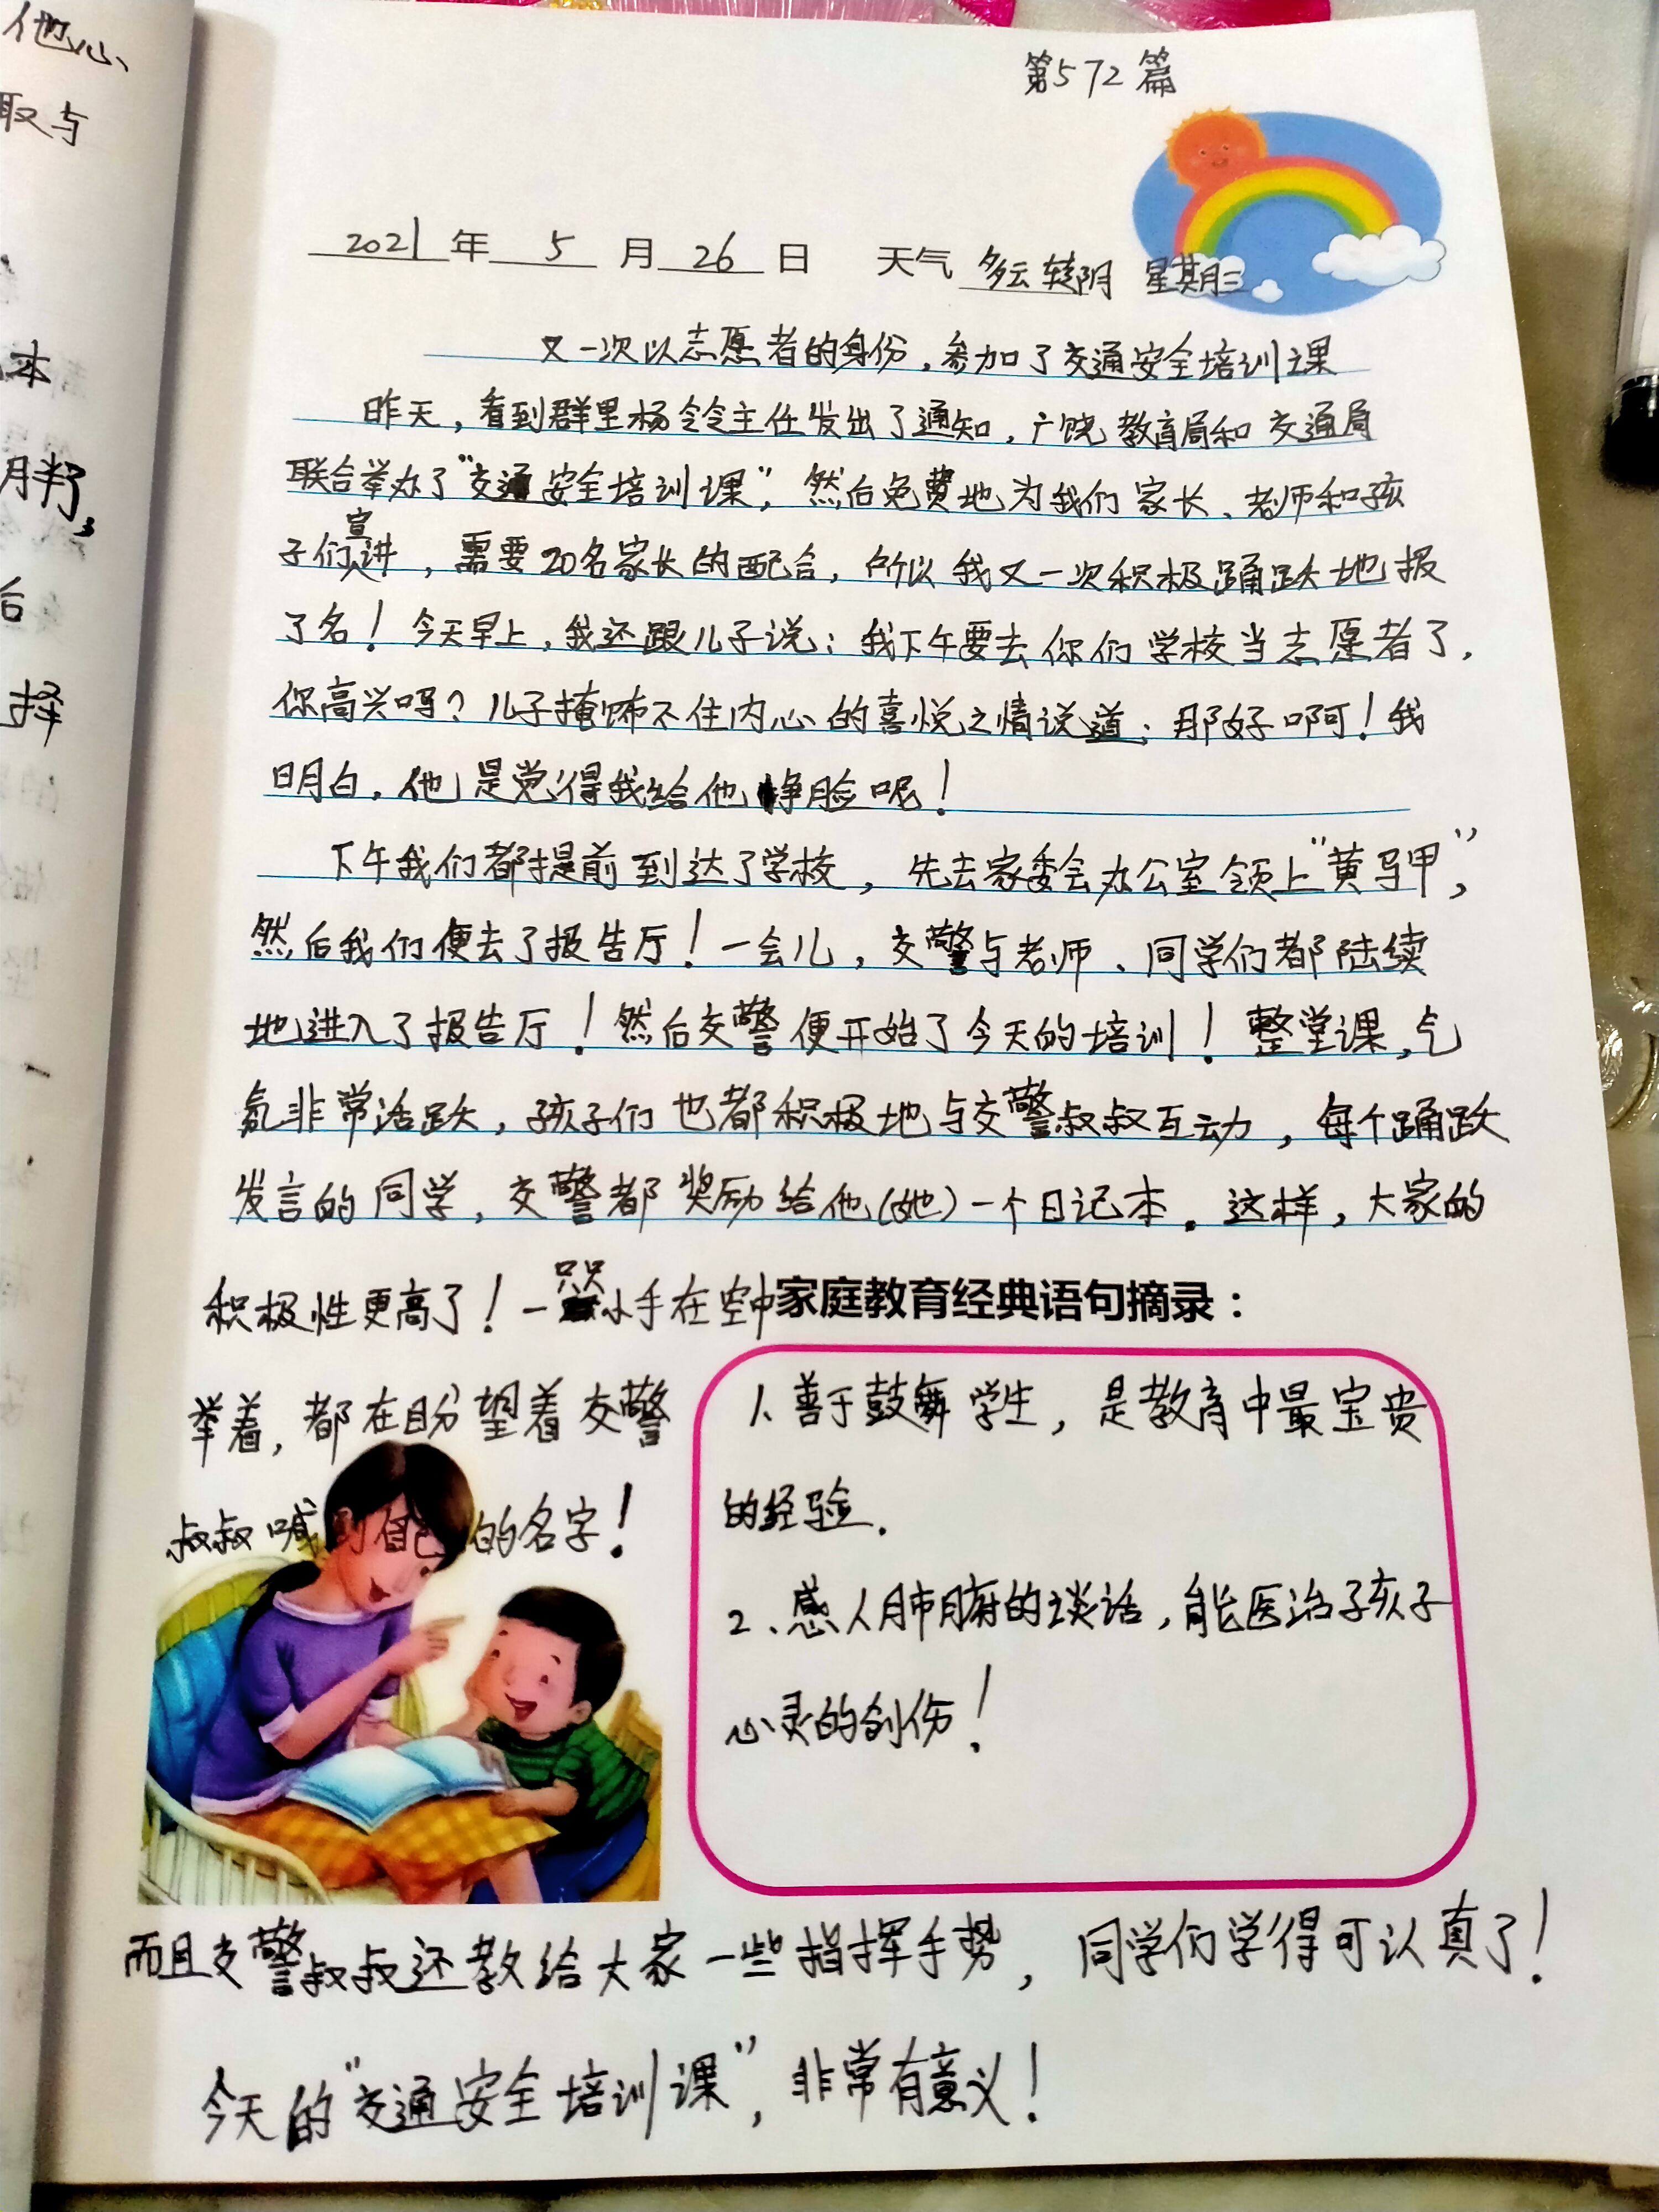 第572篇
2021年5月26日 天气 多云转阴 星期三
又一次以志愿者的身份,参加了交通安全培训课
昨天,看到群里杨令令主任发出了通知,广饶教育局和交通局
联合举办了“交通安全培训课”,然后免费地为我们家长、老师和孩
子们宣讲,需要20名家长的配合,所以我又一次积极踊跃地报
了名!今天早上,我还跟儿子说:我下午要去你们学校当志愿者了,
你高兴吗?儿子掩饰不住内心的喜悦之情说道:那好啊!我
明白,他是觉得我给他挣脸呢!
下午我们都提前到达了学校,先去家委会办公室领上“黄马甲”,
然后我们便去了报告厅!一会儿,交警与老师、同学们都陆续
地进入了报告厅!然后交警便开始了今天的培训!整堂课,气
氛非常活跃,孩子们也都积极地与交警叔叔互动,每个踊跃
发言的同学,交警都奖励给他(她)一个日记本。这样,大家的
积极性更高了!一只只小手在空中
举着,都在盼望着交警
叔叔喊到自己的名字!
家庭教育经典语句摘录:
1、善于鼓舞学生,是教育中最宝贵
的经验.
2、感人肺腑的谈话,能医治孩子
心灵的创伤!
而且交警叔叔还教给大家一些指挥手势,同学们学得可认真了!
今天的“交通安全培训课”,非常有意义!
他心、
取与
本
胖了,
后
择